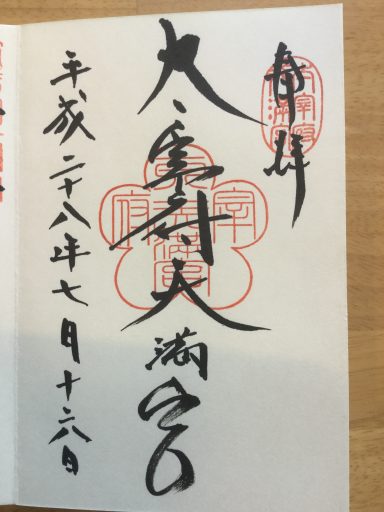 奉拝
太宰府
天満宮
太宰府天満宮
太宰府天満宮
平成二十八年七月十六日